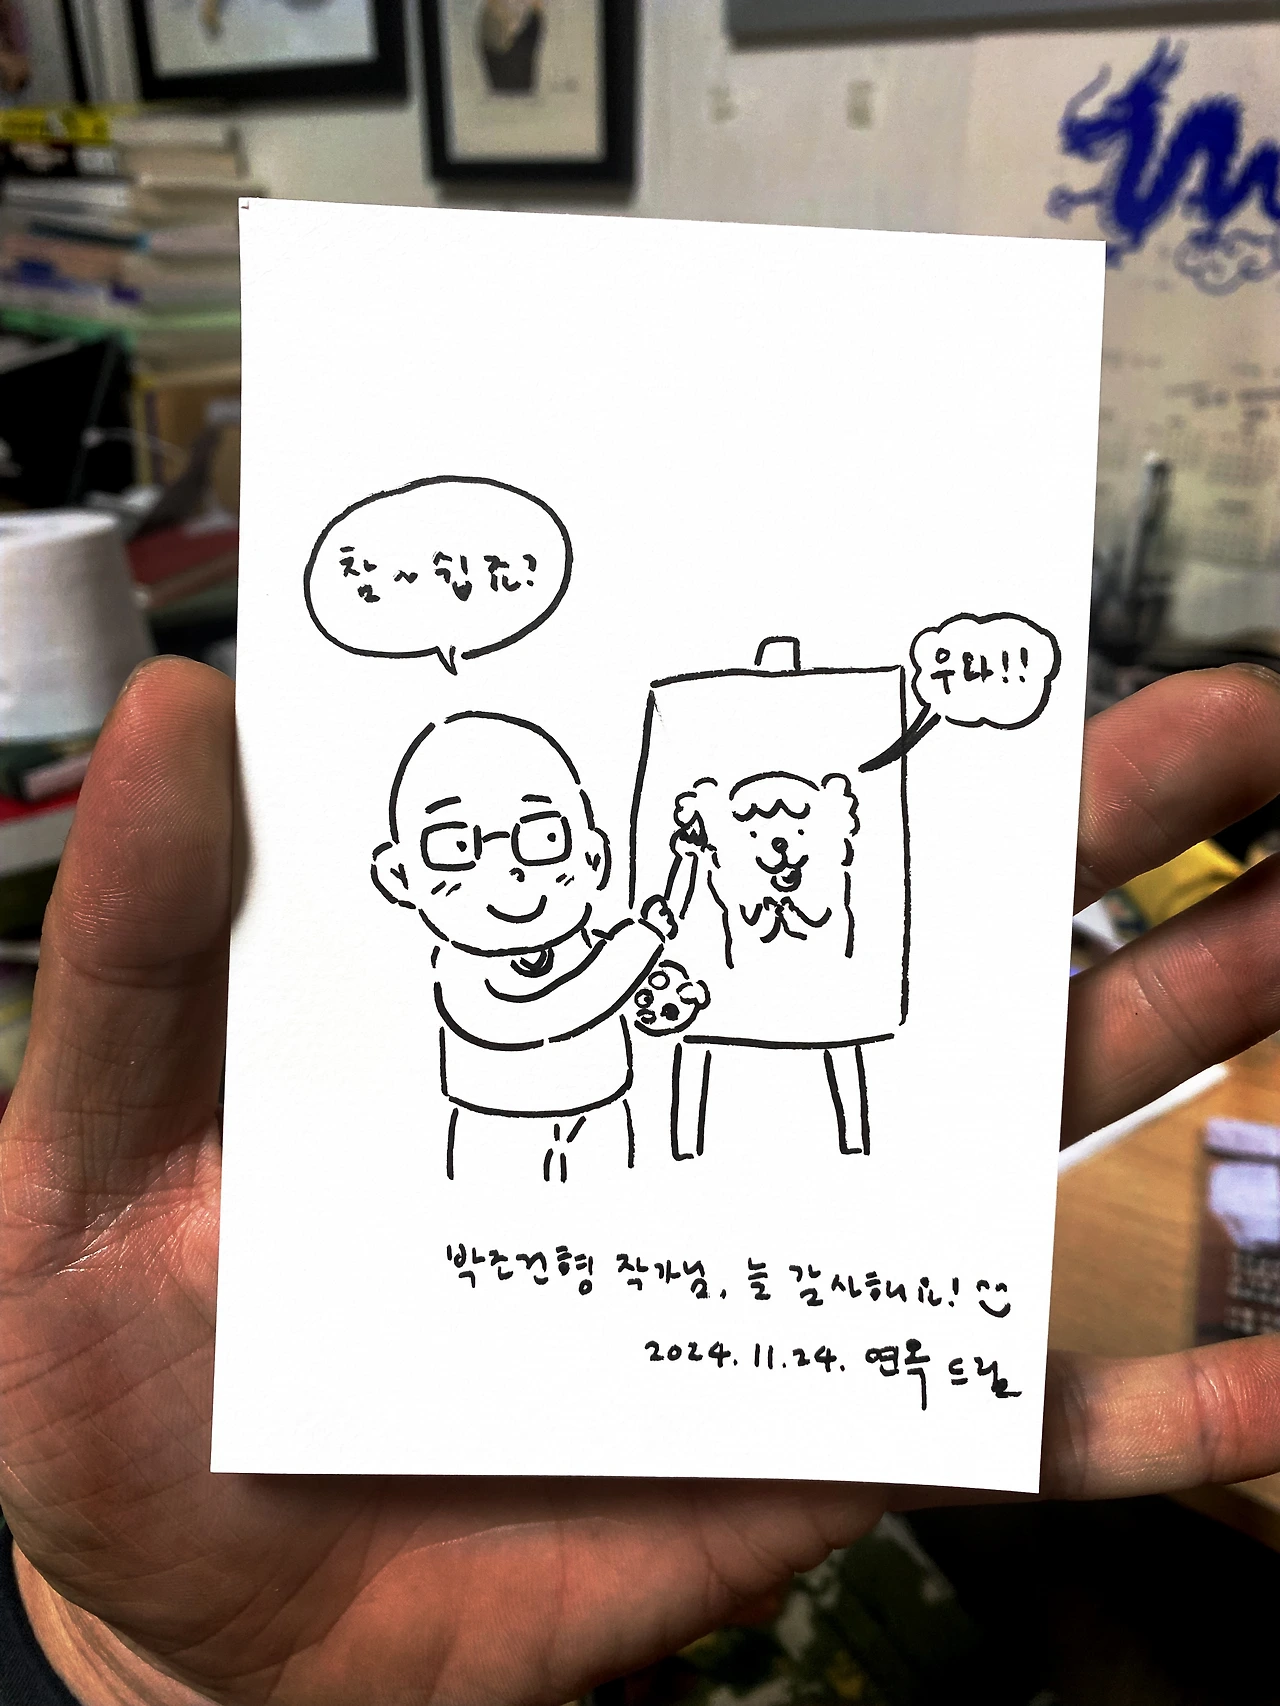 참~ 쉽죠?
우와!!
박조건형 작가님, 늘 감사해요!
2024. 11. 24. 연옥 드림